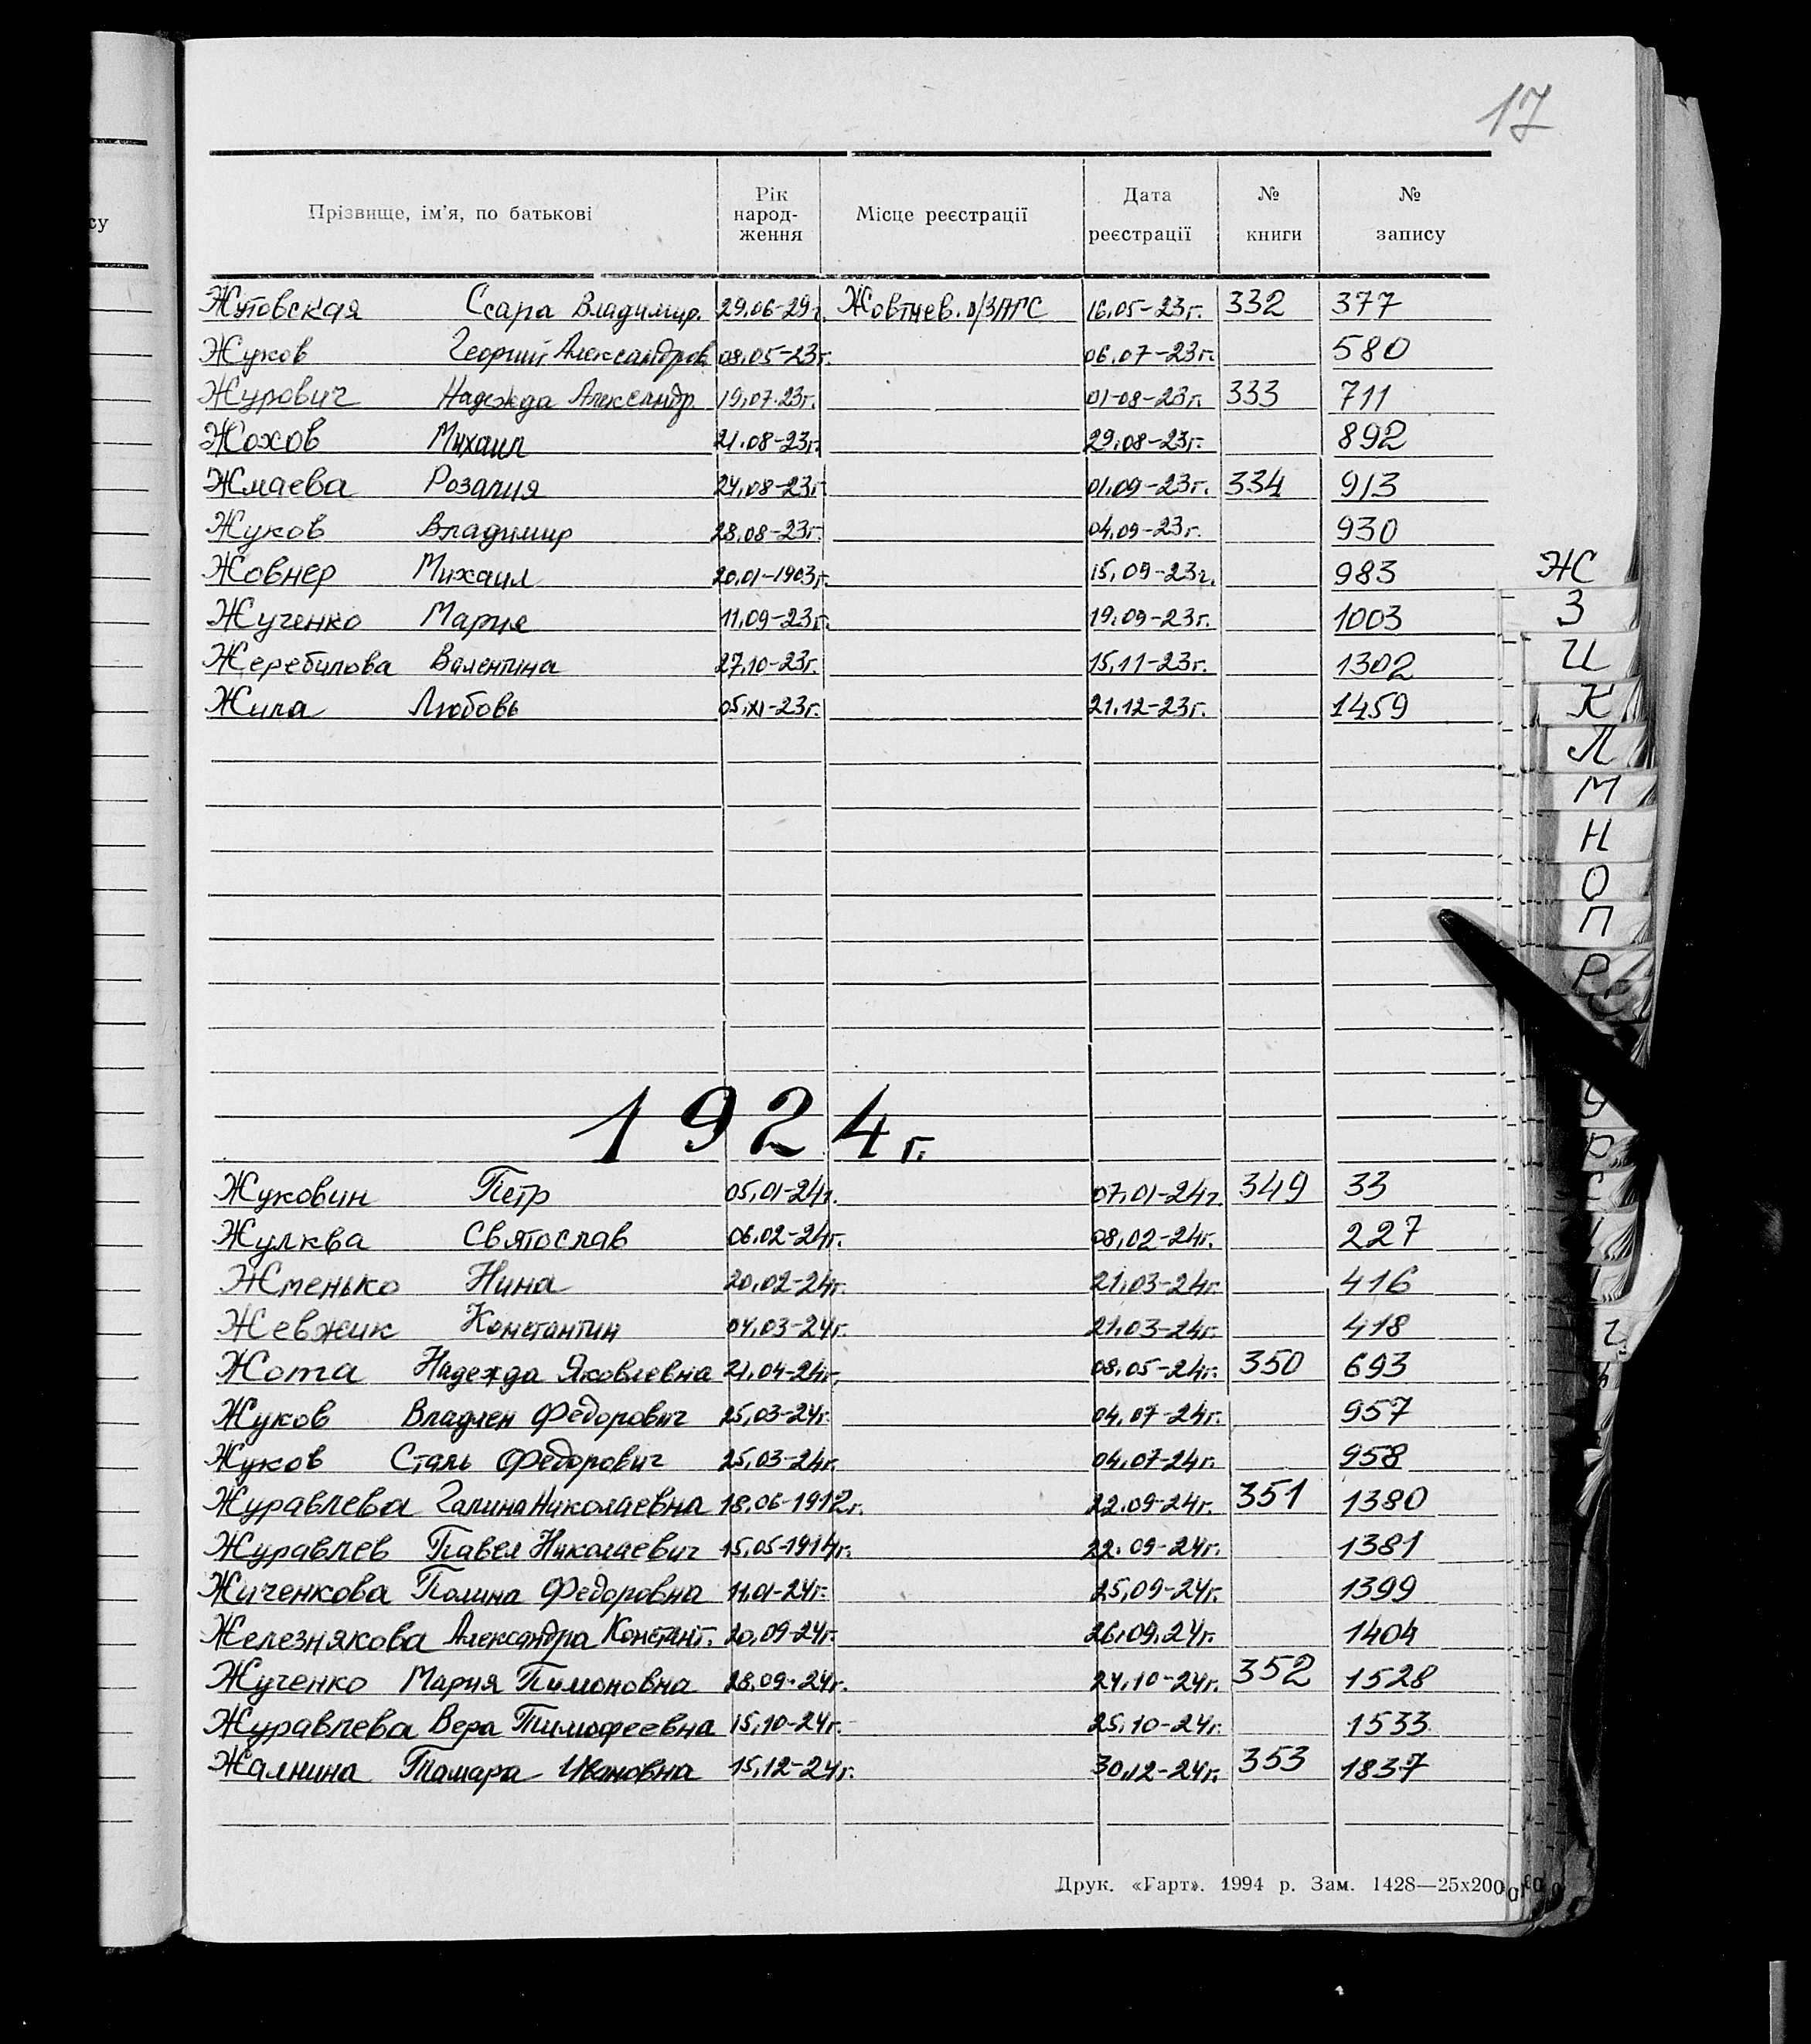 17
су
Прізвище, ім'я, по батькові | Рік народ-ження | Місце реєстрації | Дата реєстрації | № книги | № запису
Жутовская Ссара Владимир. 29.06-29г. Жовтнев. в/ЗАГС 16.05-23г. 332 377
Жуков Георгий Александров. 08.05-23г. 06.07-23г. 580
Журович Надежда Александр. 19.07.23г. 01-08-23г. 333 711
Жохов Михаил 21.08-23г. 29.08-23г. 892
Жмаева Розалия 24.08-23г. 01.09-23г. 334 913
Жуков Владимир 28.08-23г. 04.09-23г. 930
Жовнер Михаил 20.01-1903г. 15.09-23г. 983
Жученко Мария 11.09-23г. 19.09-23г. 1003
Жеребилова Валентина 27.10-23г. 15.11-23г. 1302
Жила Любовь 05.XI-23г. 21.12-23г. 1459
1924г.
Жуковин Петр 05.01-24г. 07.01-24г. 349 33
Жулква Святослав 06.02-24г. 08.02-24г. 227
Жменько Нина 20.02-24г. 21.03-24г. 416
Жевжик Константин 04.03-24г. 21.03-24г. 418
Жота Надежда Яковлевна 21.04-24г. 08.05-24г. 350 693
Жуков Владлен Федорович 25.03-24г. 04.07-24г. 957
Жуков Сталь Федорович 25.03-24г. 04.07-24г. 958
Журавлева Галина Николаевна 18.06-1912г. 22.09-24г. 351 1380
Журавлев Павел Николаевич 15.05-1914г. 22.09-24г. 1381
Жиченкова Полина Федоровна 11.01-24г. 25.09-24г. 1399
Железнякова Александра Констант. 20.09-24г. 26.09.24г. 1404
Жученко Мария Тимоновна 28.09-24г. 24.10-24г. 352 1528
Журавлева Вера Тимофеевна 15.10-24г. 25.10-24г. 1533
Жалнина Тамара Ивановна 15.12-24г. 30.12-24г. 353 1837
Друк. «Гарт». 1994 р. Зам. 1428—25х200
Ж
З
И
К
Л
М
Н
О
П
Р